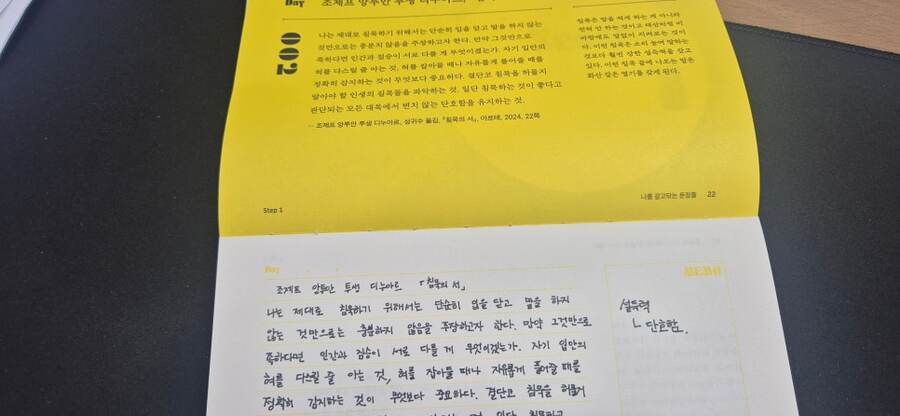 DAY
002
조제프 앙투안 투생 디누아르,
나는 제대로 침묵하기 위해서는 단순히 입을 닫고 말을 하지 않는
것만으로는 충분하지 않음을 주장하고자 한다. 만약 그것만으로
족하다면 인간과 짐승이 서로 다를 게 무엇이겠는가. 자기 입안의
혀를 다스릴 줄 아는 것, 혀를 잡아둘 때나 자유롭게 풀어줄 때를
정확히 감지하는 것이 무엇보다 중요하다. 결단코 침묵을 허물지
말아야 할 인생의 침묵들을 파악하는 것. 일단 침묵하는 것이 좋다고
판단되는 모든 대목에서 변치 않는 단호함을 유지하는 것.
— 조제프 앙투안 투생 디누아르, 성귀수 옮김, 『침묵의 서』, 아르테, 2024, 22쪽
침묵은 말을 하지 않는 게 아니라
것보다 훨씬 강한 설득력을 갖고
있다. 이런 침묵 끝에 나오는 말은
화산 같은 열기를 갖게 된다.
Step 1
나를 갈고닦는 문장들
22
Day
MEMO
조제프 앙투안 투생 디누아르 「침묵의 서」
나는 제대로 침묵하기 위해서는 단순히 입을 닫고 말을 하지
않는 것만으로는 충분하지 않음을 주장하고자 한다. 만약 그것만으로
족하다면 인간과 짐승이 서로 다를 게 무엇이겠는가. 자기 입안의
혀를 다스릴 줄 아는 것, 혀를 잡아둘 때나 자유롭게 풀어줄 때를
정확히 감지하는 것이 무엇보다 중요하다. 결단코 침묵을 허물지
일단 침묵하고
설득력
ㄴ 단호함.